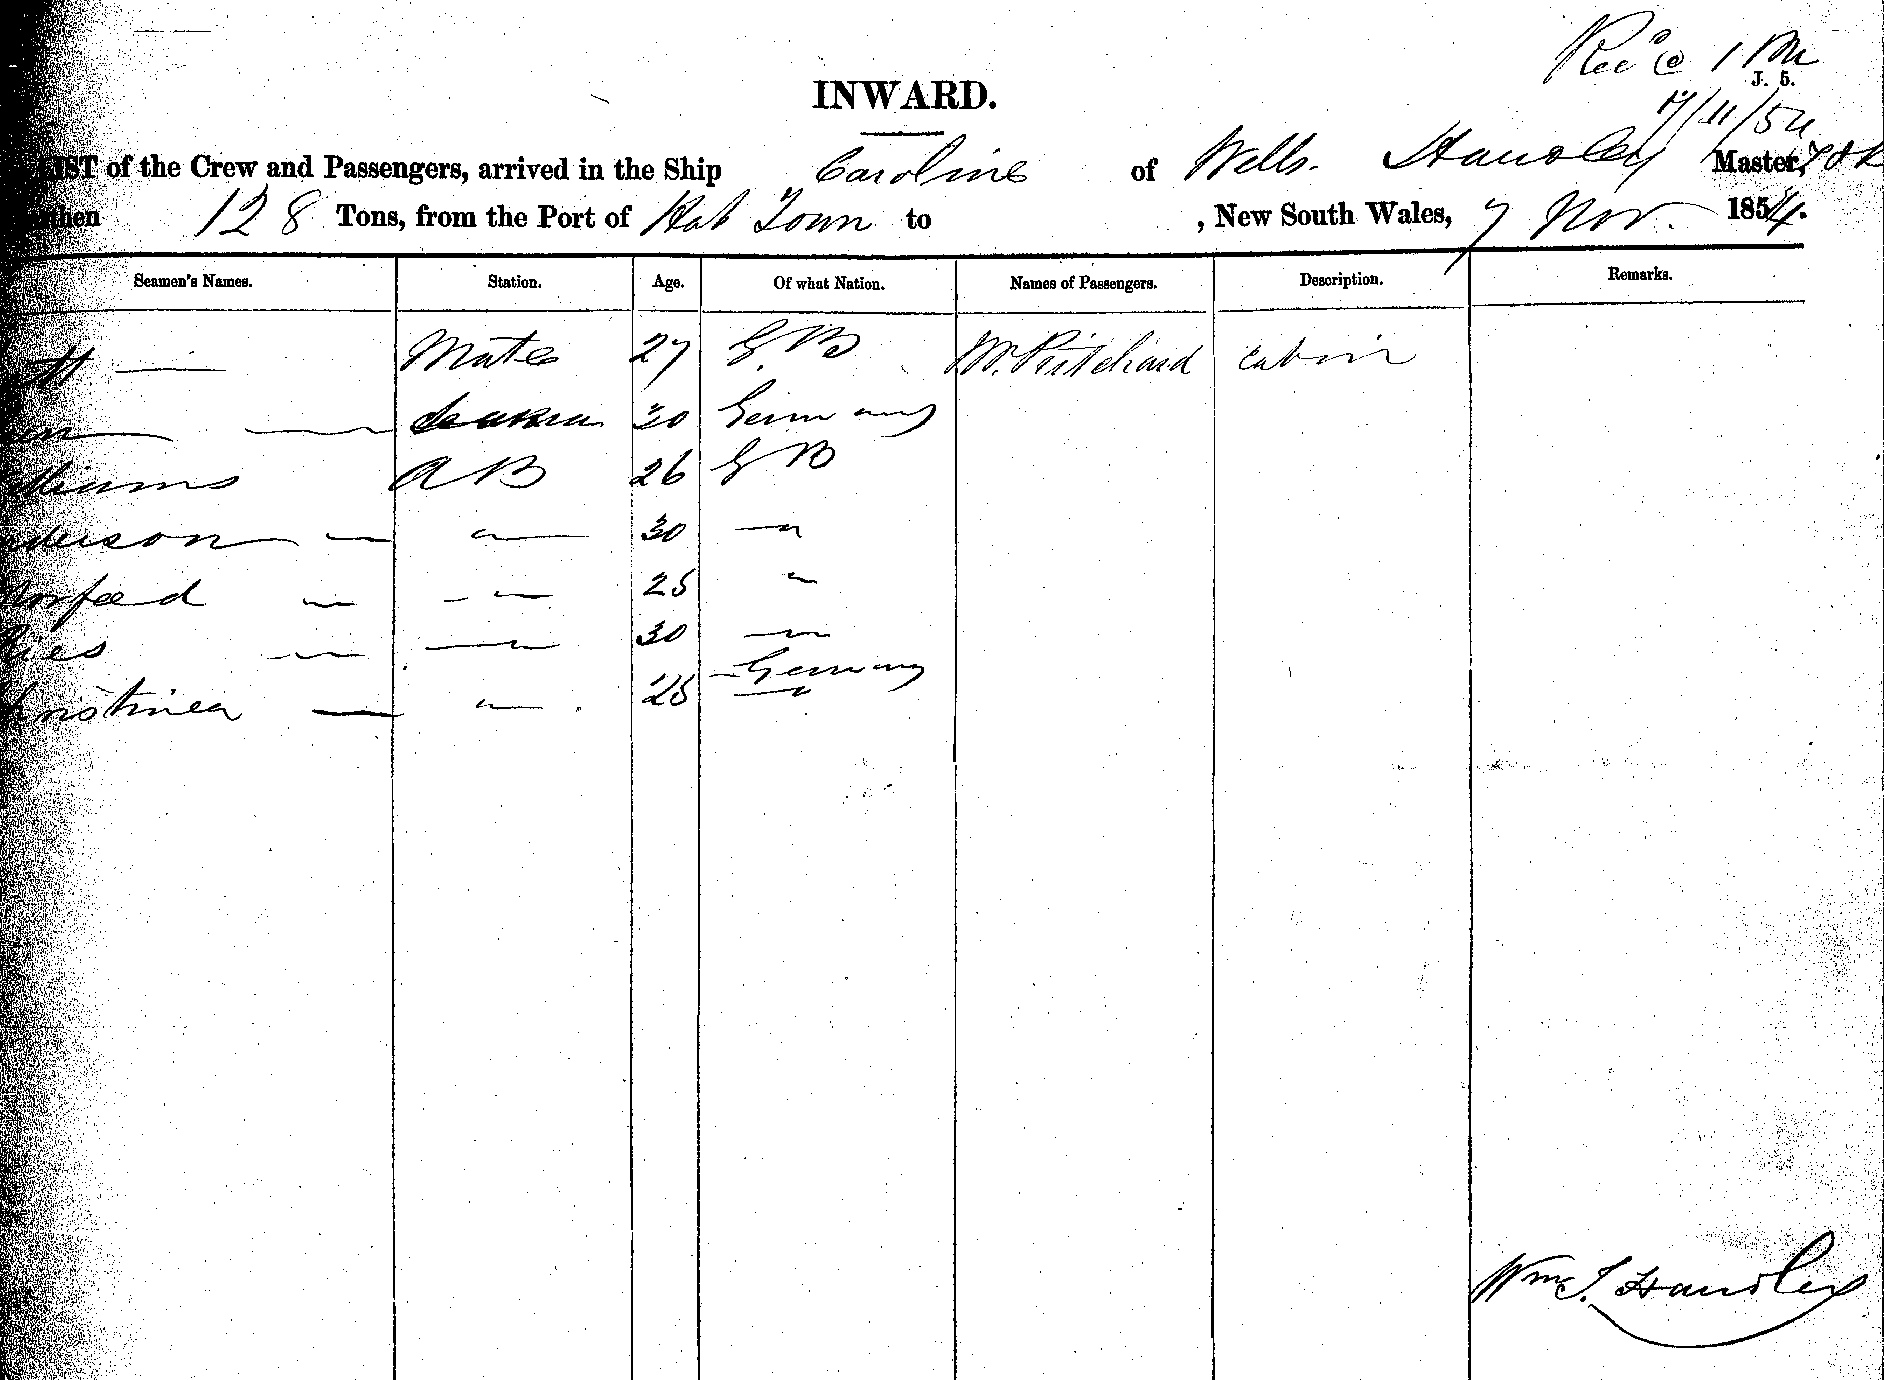 Rec'd 1 PM
J. 5.
INWARD.
17/11/54
LIST of the Crew and Passengers, arrived in the Ship Caroline of Wells. Handley Master,
then 128 Tons, from the Port of Hob Town to , New South Wales, 7 Nov. 1854.
Seamen's Names. Station. Age. Of what Nation. Names of Passengers. Description. Remarks.
Mate 27 G. B Mr. Pritchard cabin
30 Germany
lliams AB 26 G B
derson — " — " 30 — "
" " 25 "
" — " 30 — "
Germany
hristinea — " 25 — "
Wm S. Handley